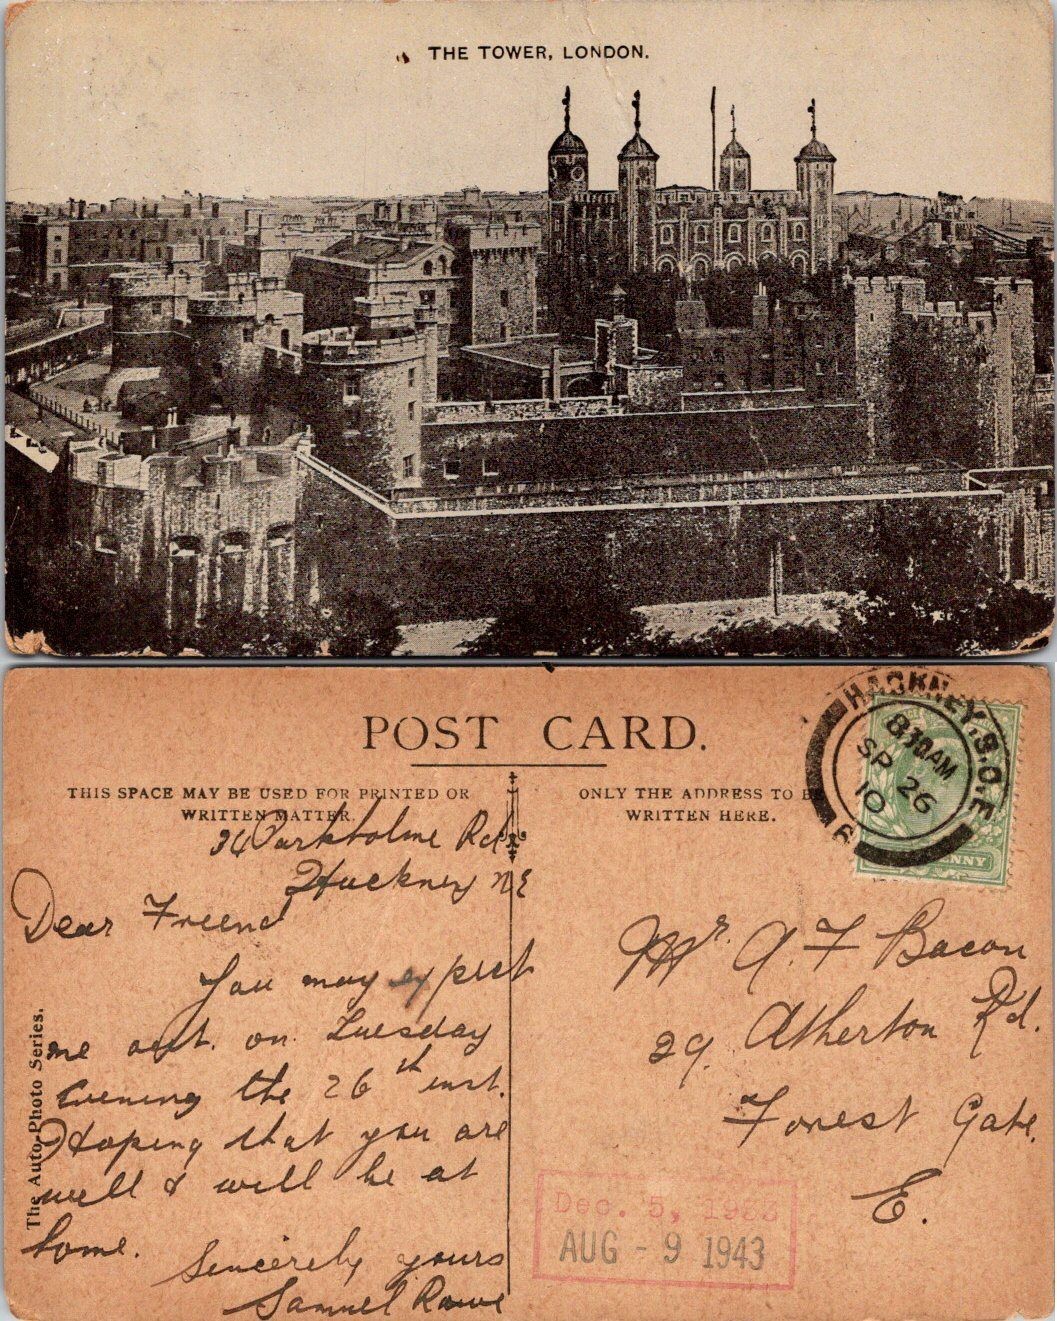 THE TOWER, LONDON.
POST CARD.
THIS SPACE MAY BE USED FOR PRINTED OR
WRITTEN MATTER.
ONLY THE ADDRESS TO BE
WRITTEN HERE.
HACKNEY. S.O.
8.30 AM
SP 26
10
6
NNY
Parkholme Rd
Hackney NE
Dear Friend
You may expect
me out. on Tuesday
evening the 26th inst.
Hoping that you are
well & will be at
home.
Sincerely yours
Samuel Rowe
The Auto-Photo Series.
Mr. A. F Bacon
29. Atherton Rd.
Forest Gate.
E.
Dec. 5,
AUG - 9 1943